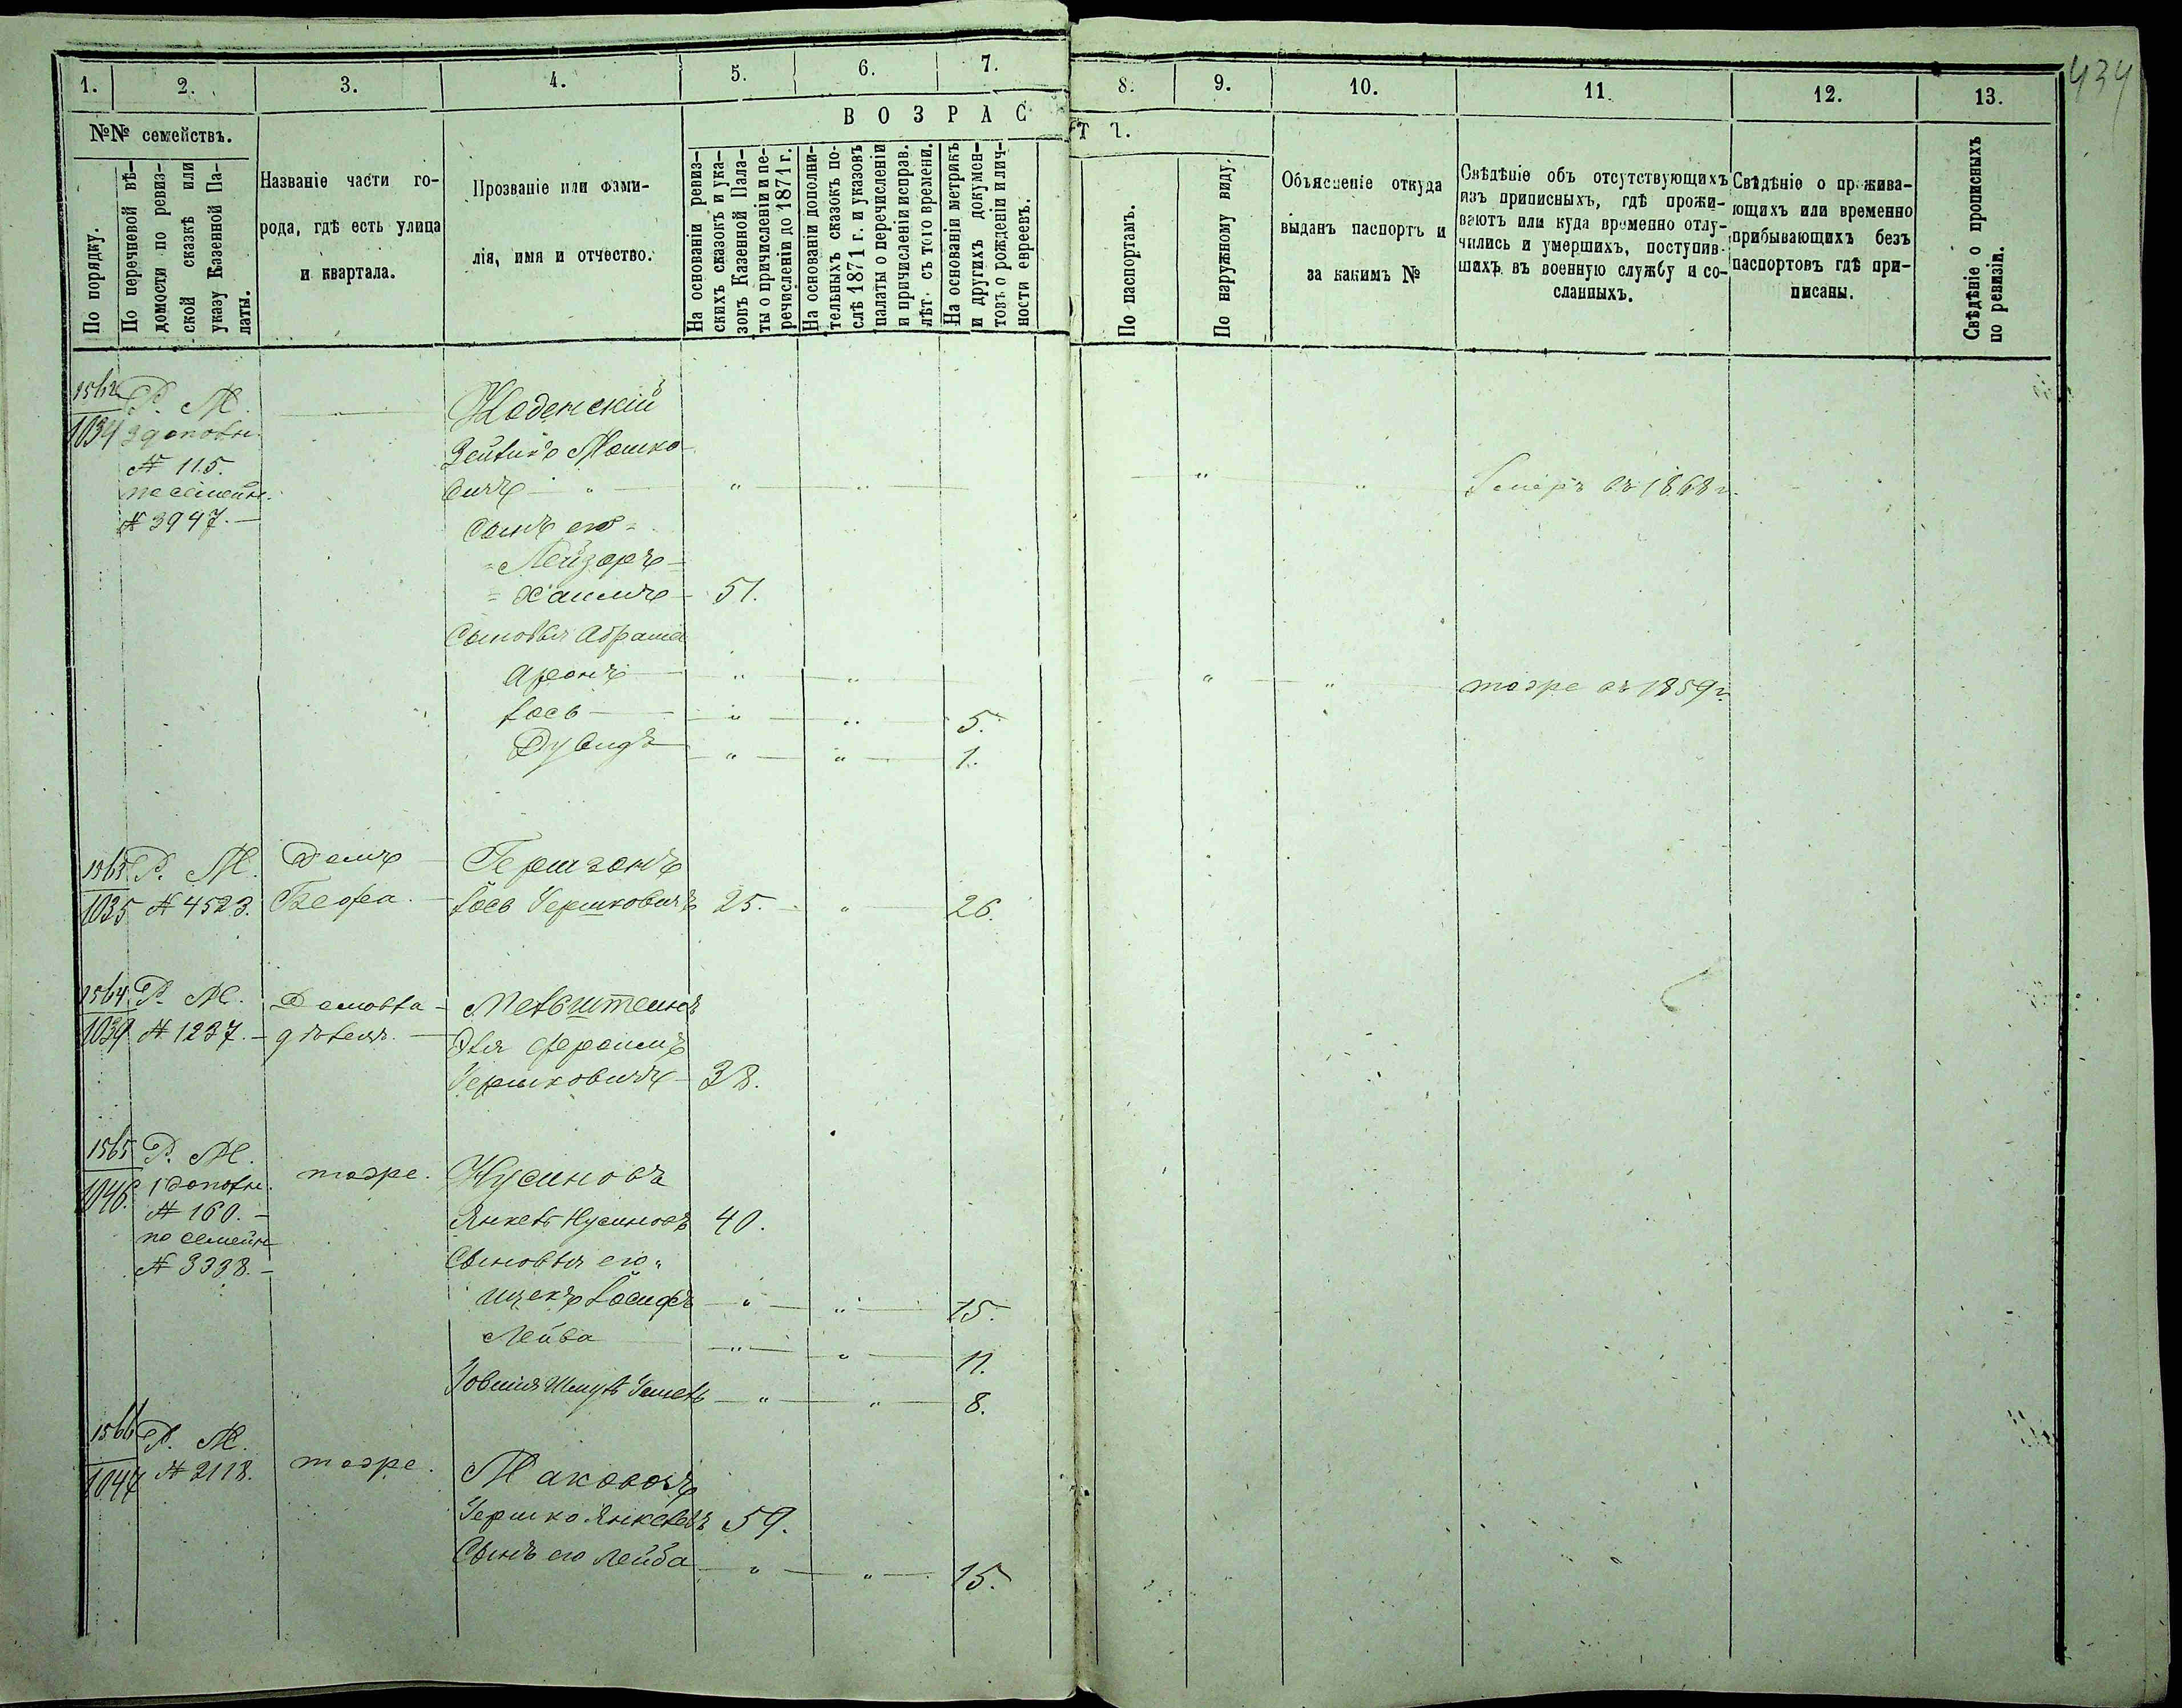 434
1. 2. 3. 4. 5. 6. 7. 8. 9. 10. 11. 12. 13.
№№ семействъ.
По порядку.
По перечневой вѣ-
домости по ревиз-
ской сказкѣ или
указу Казенной Па-
латы.
Названіе части го-
рода, гдѣ есть улица
и квартала.
Прозваніе или фами-
лія, имя и отчество.
ВОЗРАСТЪ.
На основаніи ревиз-
скихъ сказокъ и ука-
зовъ Казенной Пала-
ты о причисленіи и пе-
речисленіи до 1871 г.
На основаніи дополни-
тельныхъ сказокъ по-
слѣ 1871 г. и указовъ
палаты о перечисленіи
и причисленіи исправ.
лѣт. съ того времени.
На основаніи метрикъ
и другихъ докумен-
товъ о рожденіи и лич-
ности евреевъ.
По паспортамъ.
По наружному виду.
Объясненіе откуда
выданъ паспортъ и
за какимъ №
Свѣдѣніе объ отсутствующихъ
изъ приписныхъ, гдѣ прожи-
ваютъ или куда временно отлу-
чились и умершихъ, поступив-
шихъ въ военную службу и со-
сланныхъ.
Свѣдѣніе о прожива-
ющихъ или временно
прибывающихъ безъ
паспортовъ гдѣ при-
писаны.
Свѣдѣніе о прописныхъ
по ревизіи.
1562 Р. М.
1034 3 дополн.
№ 115.
по семейн.
№ 3947.
Зейвикъ Мошко-
вичъ " " " " " Умеръ въ 1868 г.
Сынъ его
Лейзоръ
Хаимъ 51.
Сыновья Абрама
Аронъ " " " " тоже въ 1859 г.
Іось " " 5.
Дувидъ " " 1.
1563 Р. М. Домъ Гершгонъ
1035 № 4523. Іось Гершковичъ 25. " 26.
1564 Р. М. Домовла-
1039 № 1237. дѣлецъ.
Эля Фроимъ
Гершковичъ 38.
1565 Р. М. тоже. Нусиновъ
1046. 1 дополн.
№ 160. Янкель Нусиновъ 40.
по семейн
№ 3338. Сыновья его
Ицекъ Іосифъ " " 15.
Лейба " " 11.
Ховшия Шмуль " " 8.
1566 Р. М. тоже.
1047 № 2118. Маковозъ
Гершко Янкелевъ 59.
Сынъ его Лейба " " 15.